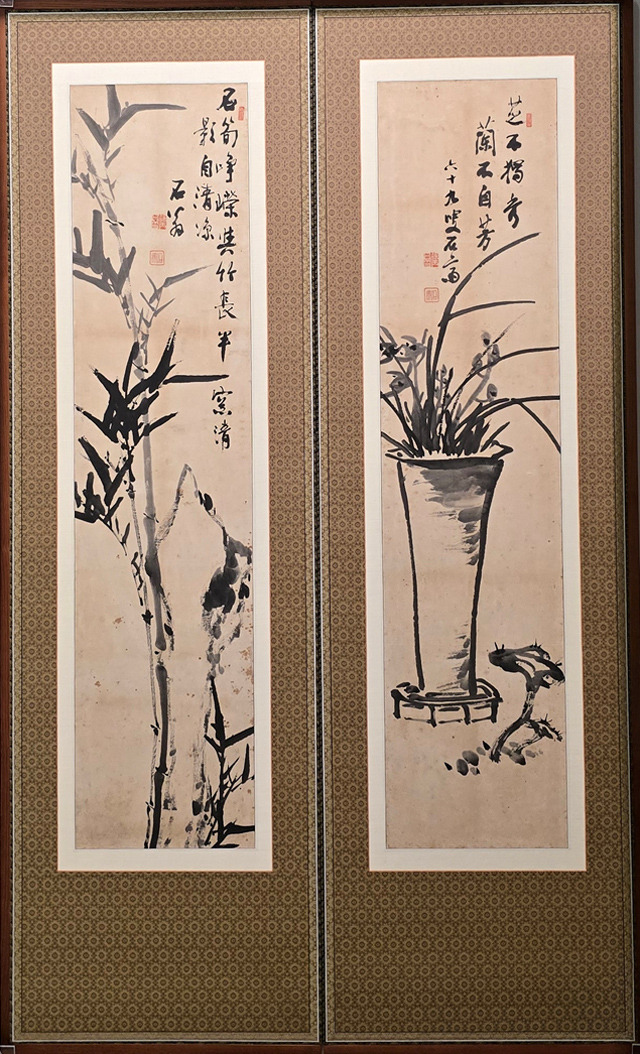 芝不獨秀
蘭不自芳
六十九叟石齋
石筍崢嶸與竹長半窓清
影自清凉
石翁